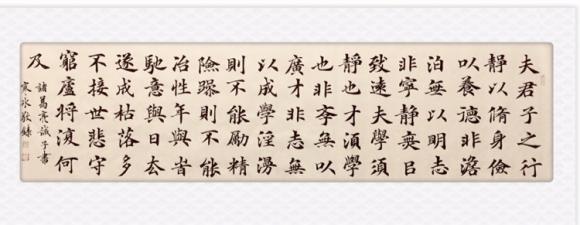 夫君子之行
靜以脩身儉
以養德非澹
泊無以明志
非寧靜無㠯
致遠夫學須
靜也才須學
也非斈無以
廣才非志無
以成學淫漫
則不能勵精
險躁則不能
冶性年與旹
馳意與日去
遂成枯落多
不接世悲守
窮廬將復何
及
諸葛亮誡子書
寒冰敬錄